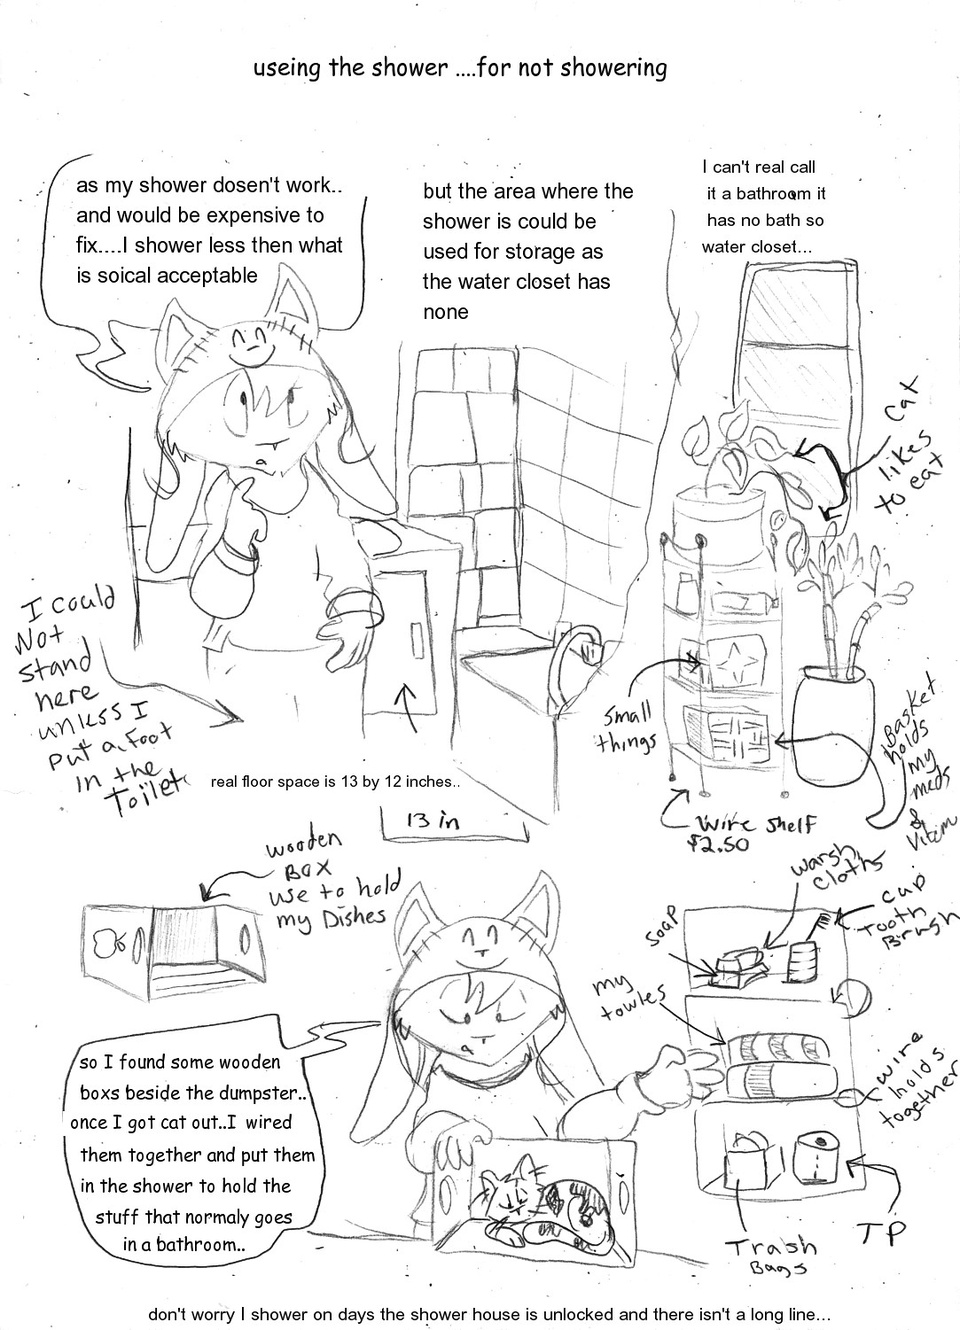 useing the shower ....for not showering
as my shower dosen't work..
and would be expensive to
fix....I shower less then what
is soical acceptable
but the area where the
shower is could be
used for storage as
the water closet has
none
I can't real call
it a bathroom it
has no bath so
water closet...
Cat
likes
to eat
I could
Not
stand
here
unless I
put a foot
in the
Toilet
real floor space is 13 by 12 inches..
13 in
small
things
Basket
holds
my
meds
&
vitam
Wire shelf
$2.50
wooden
Box
use to hold
my Dishes
warsh
cloths
cup
tooth
Brush
soap
my
towles
wire
holds
together
so I found some wooden
boxs beside the dumpster..
once I got cat out..I wired
them together and put them
in the shower to hold the
stuff that normaly goes
in a bathroom..
Trash
Bags
TP
don't worry I shower on days the shower house is unlocked and there isn't a long line...